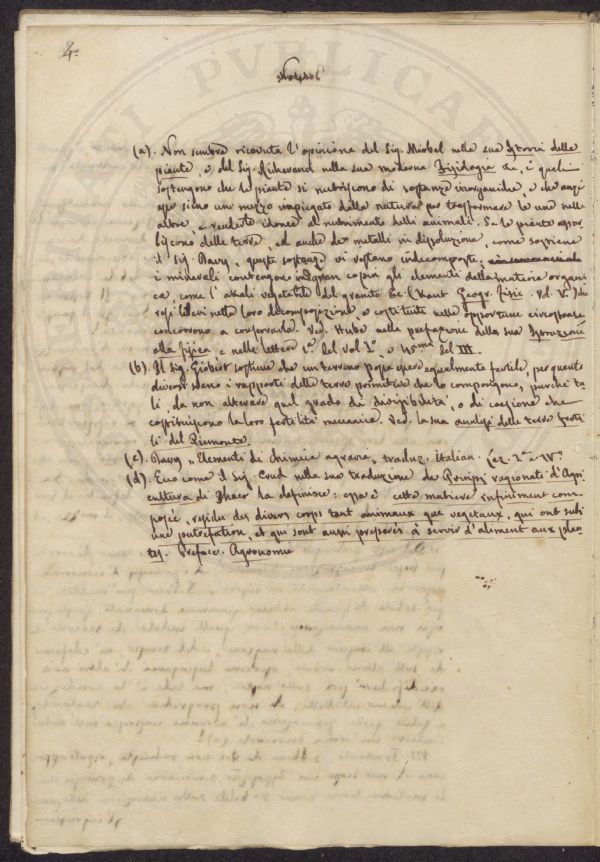 4.
Note
(a). Non sembra ricevuta l'opinione del Sig. Mirbel nella sua Storia delle
piante, e del Sig. Richerand nella sua moderna Fisiologia &c, i quali
sostengono che le piante si nutriscono di sostanze inorganiche, e che anzi
esse siano un mezzo impiegato dalla natura per trasformare le une nelle
altre, e renderle idonee al nutrimento delli animali. Se le piante assor-
biscono delle terre, ed anche de metalli in dissoluzione, come sostiene
il Sig. Davy, queste sostanze vi restano indecomposte.
i minerali contengono in gran copia gli elementi della materia organi-
ca, come l'alkali vegetabile del granito &c (Kant Geogr. fisic. Vol. V.) che
resi liberi nella loro decomposizione e costituiti nelle opportune circostanze
concorrono a conservarla. Ved. Hube nella prefazione della sua Istruzione
alla fisica e nelle lettere 1.a del vol 1.o e 45ma del III.
(b). Il Sig. Giobert sostiene che un terreno possa essere egualmente fertile, per quanto
diversi siano i rapporti delle terre primitive che lo compongono, purchè ta-
li, da non alterare quel grado di divisibilità, o di coesione che
costituiscono la loro fertilità meccanica. Ved. la sua analisi delle terre ferti-
li del Piemonte.
(c). Davy "Elementi di chimica agraria, traduz. italian. Lez. IV.a
(d). Ecco come il Sig. Crud nella sua traduzione de Principj ragionati d'Agri-
cultura di Thaer la definisce: essa è cette matiere infiniment com-
posée, residu des divers corps tant animaux que vegetaux, qui ont subi
une putrefation, et qui sont aussi preparés à servir d'aliment aux plan-
tes. Preface. Agronomie